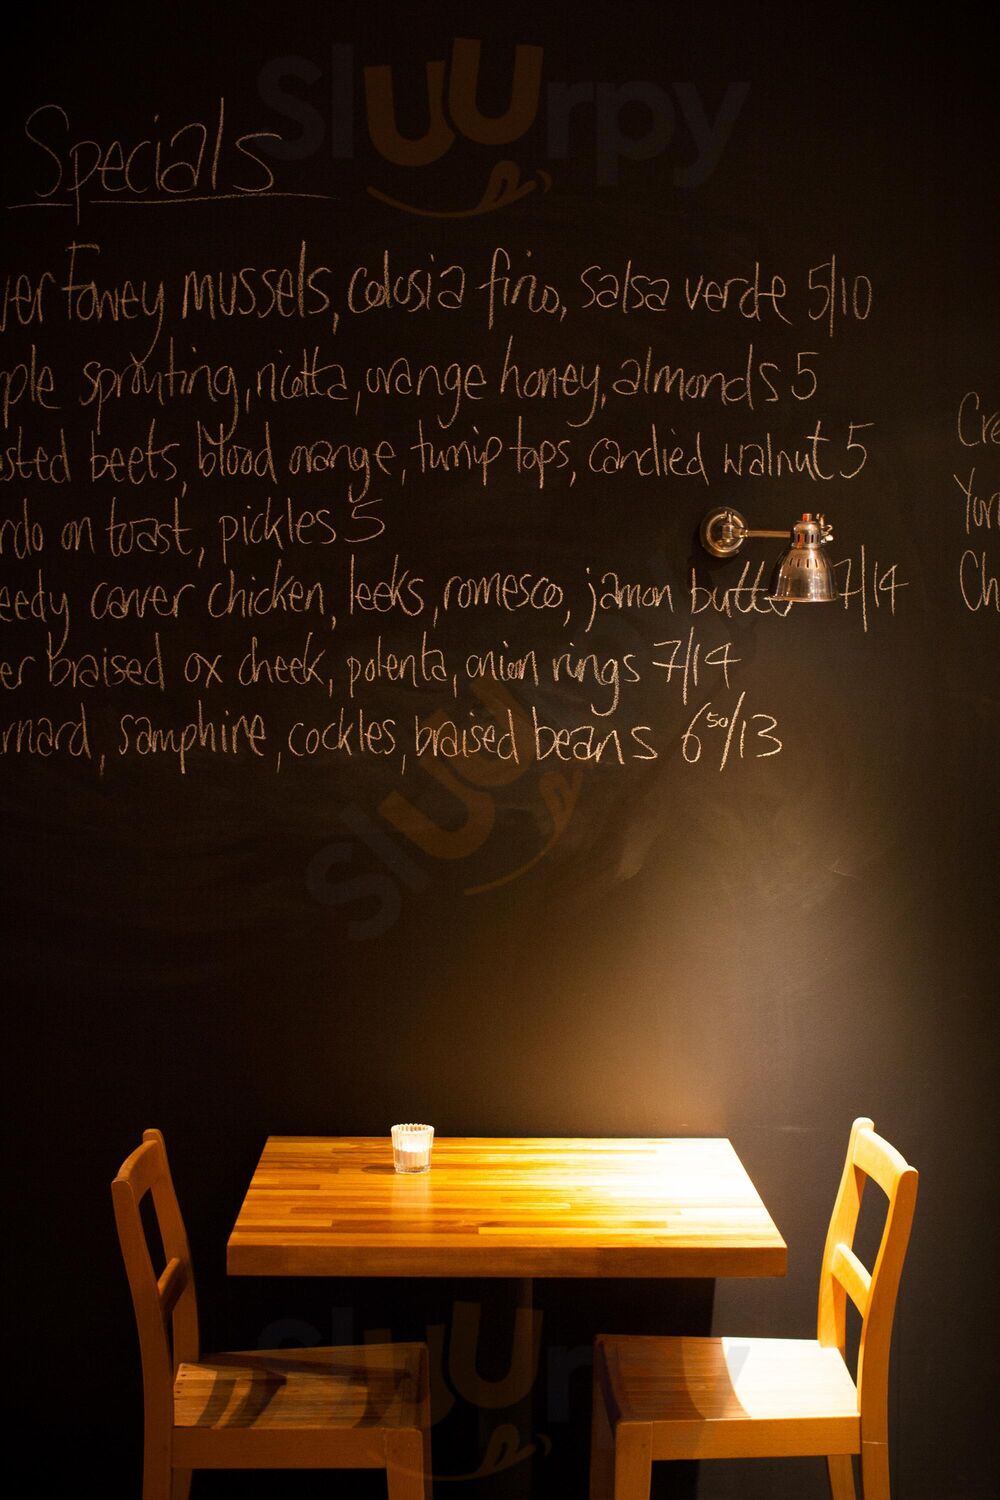 Sluurpy
Specials
ver Fowey mussels, colosia fino, salsa verde 5/10
ple sprouting, ricotta, orange honey, almonds 5
sted beets, blood orange, turnip tops, candied walnut 5
rdo on toast, pickles 5
eedy carver chicken, leeks, romesco, jamon butter 7/14
er braised ox cheek, polenta, onion rings 7/14
rnard, samphire, cockles, braised beans 650/13
Cra
Yor
Ch
Sluurpy
Sluurpy